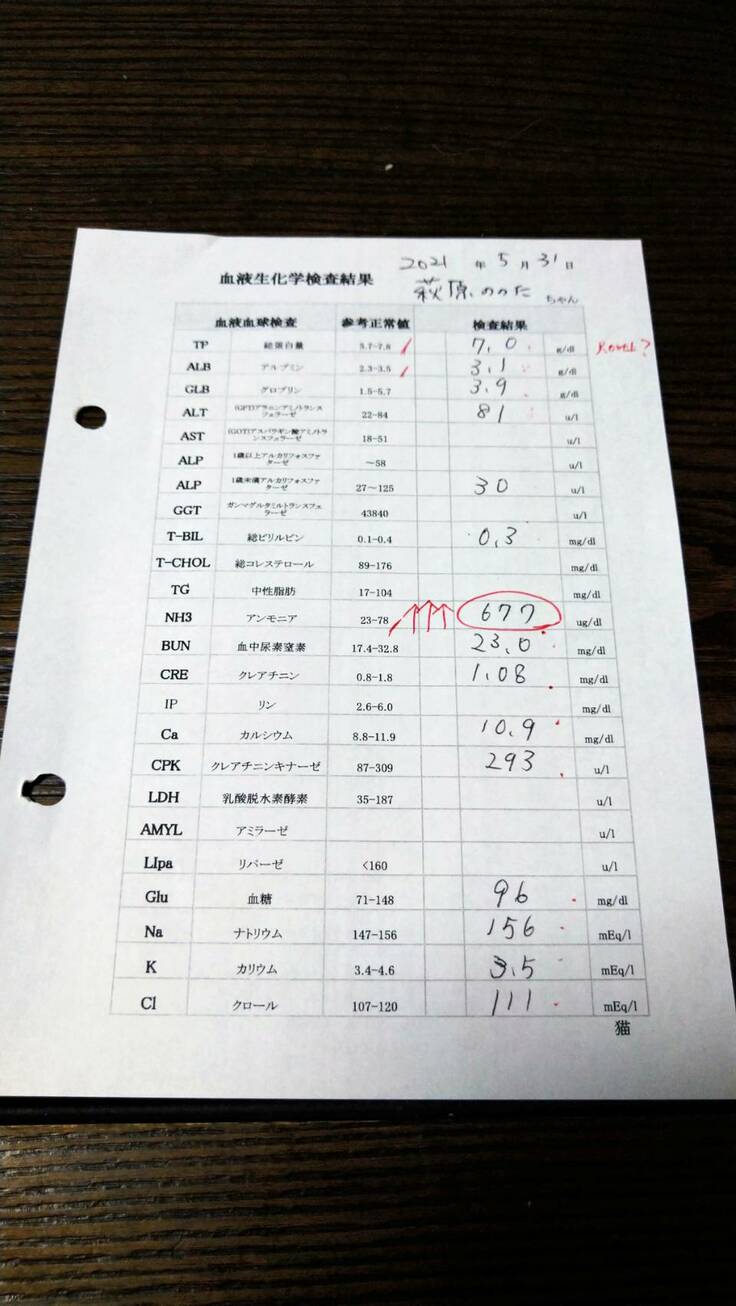 2021 年 5 月 31 日
血液生化学検査結果
萩原 ののた ちゃん
血液血球検査 参考正常値 検査結果
TP 総蛋白量 5.7-7.8 7.0 g/dl
ALB アルブミン 2.3-3.5 3.1 g/dl
GLB グロブリン 1.5-5.7 3.9 g/dl
ALT (GPT)アラニンアミノトランスフェラーゼ 22-84 81 u/l
AST (GOT)アスパラギン酸アミノトランスフェラーゼ 18-51 u/l
ALP 1歳以上アルカリフォスファターゼ ~58 u/l
ALP 1歳未満アルカリフォスファターゼ 27~125 30 u/l
GGT ガンマグルタミルトランスフェラーゼ 43840 u/l
T-BIL 総ビリルビン 0.1-0.4 0.3 mg/dl
T-CHOL 総コレステロール 89-176 mg/dl
TG 中性脂肪 17-104 mg/dl
NH3 アンモニア 23-78 ↑↑↑ 677 ug/dl
BUN 血中尿素窒素 17.4-32.8 23.0 mg/dl
CRE クレアチニン 0.8-1.8 1.08 mg/dl
IP リン 2.6-6.0 mg/dl
Ca カルシウム 8.8-11.9 10.9 mg/dl
CPK クレアチニンキナーゼ 87-309 293 u/l
LDH 乳酸脱水素酵素 35-187 u/l
AMYL アミラーゼ u/l
LIpa リパーゼ <160 u/l
Glu 血糖 71-148 96 mg/dl
Na ナトリウム 147-156 156 mEq/l
K カリウム 3.4-4.6 3.5 mEq/l
Cl クロール 107-120 111 mEq/l
猫